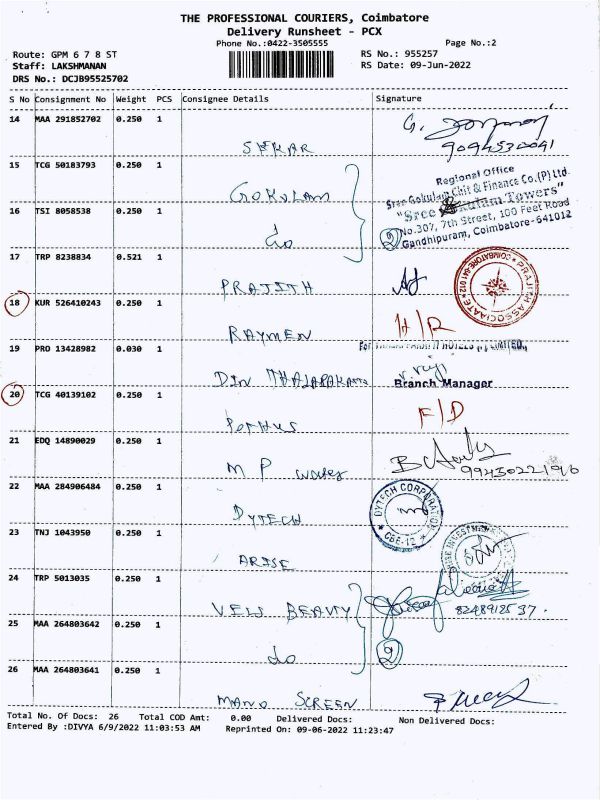 THE PROFESSIONAL COURIERS, Coimbatore
Delivery Runsheet - PCX
Phone No.:0422-3505555
Page No.:2
Route: GPM 6 7 8 ST
RS No.: 955257
Staff: LAKSHMANAN
RS Date: 09-Jun-2022
DRS No.: DCJB95525702
S No Consignment No Weight PCS Consignee Details Signature
14 MAA 291852702 0.250 1
SEKAR
15 TCG 50183793 0.250 1
GOKULAM
Regional Office
Sree Gokulam Chit & Finance Co.(P) Ltd.
"Sree Gokulam Towers"
No.307, 7th Street, 100 Feet Road
Gandhipuram, Coimbatore-641012
16 TSI 8058538 0.250 1
do
2
17 TRP 8238834 0.521 1
PRAJITH
PRAJITH ASSOCIAATE
COIMBATORE-641 012
18 KUR 526410243 0.250 1
RAYMEN
H/R
19 PRO 13428982 0.030 1
Branch Manager
20 TCG 40139102 0.250 1
F/D
21 EDQ 14890029 0.250 1
M P
22 MAA 284906484 0.250 1
DYTECH
DYTECH CORPORATION
CBE-12
23 TNJ 1043950 0.250 1
ARISE
24 TRP 5013035 0.250 1
VELS BEAUTY
25 MAA 264803642 0.250 1
do
2
26 MAA 264803641 0.250 1
MANO SCREEN
Total No. Of Docs: 26 Total COD Amt: 0.00 Delivered Docs: Non Delivered Docs:
Entered By :DIVYA 6/9/2022 11:03:53 AM Reprinted On: 09-06-2022 11:23:47